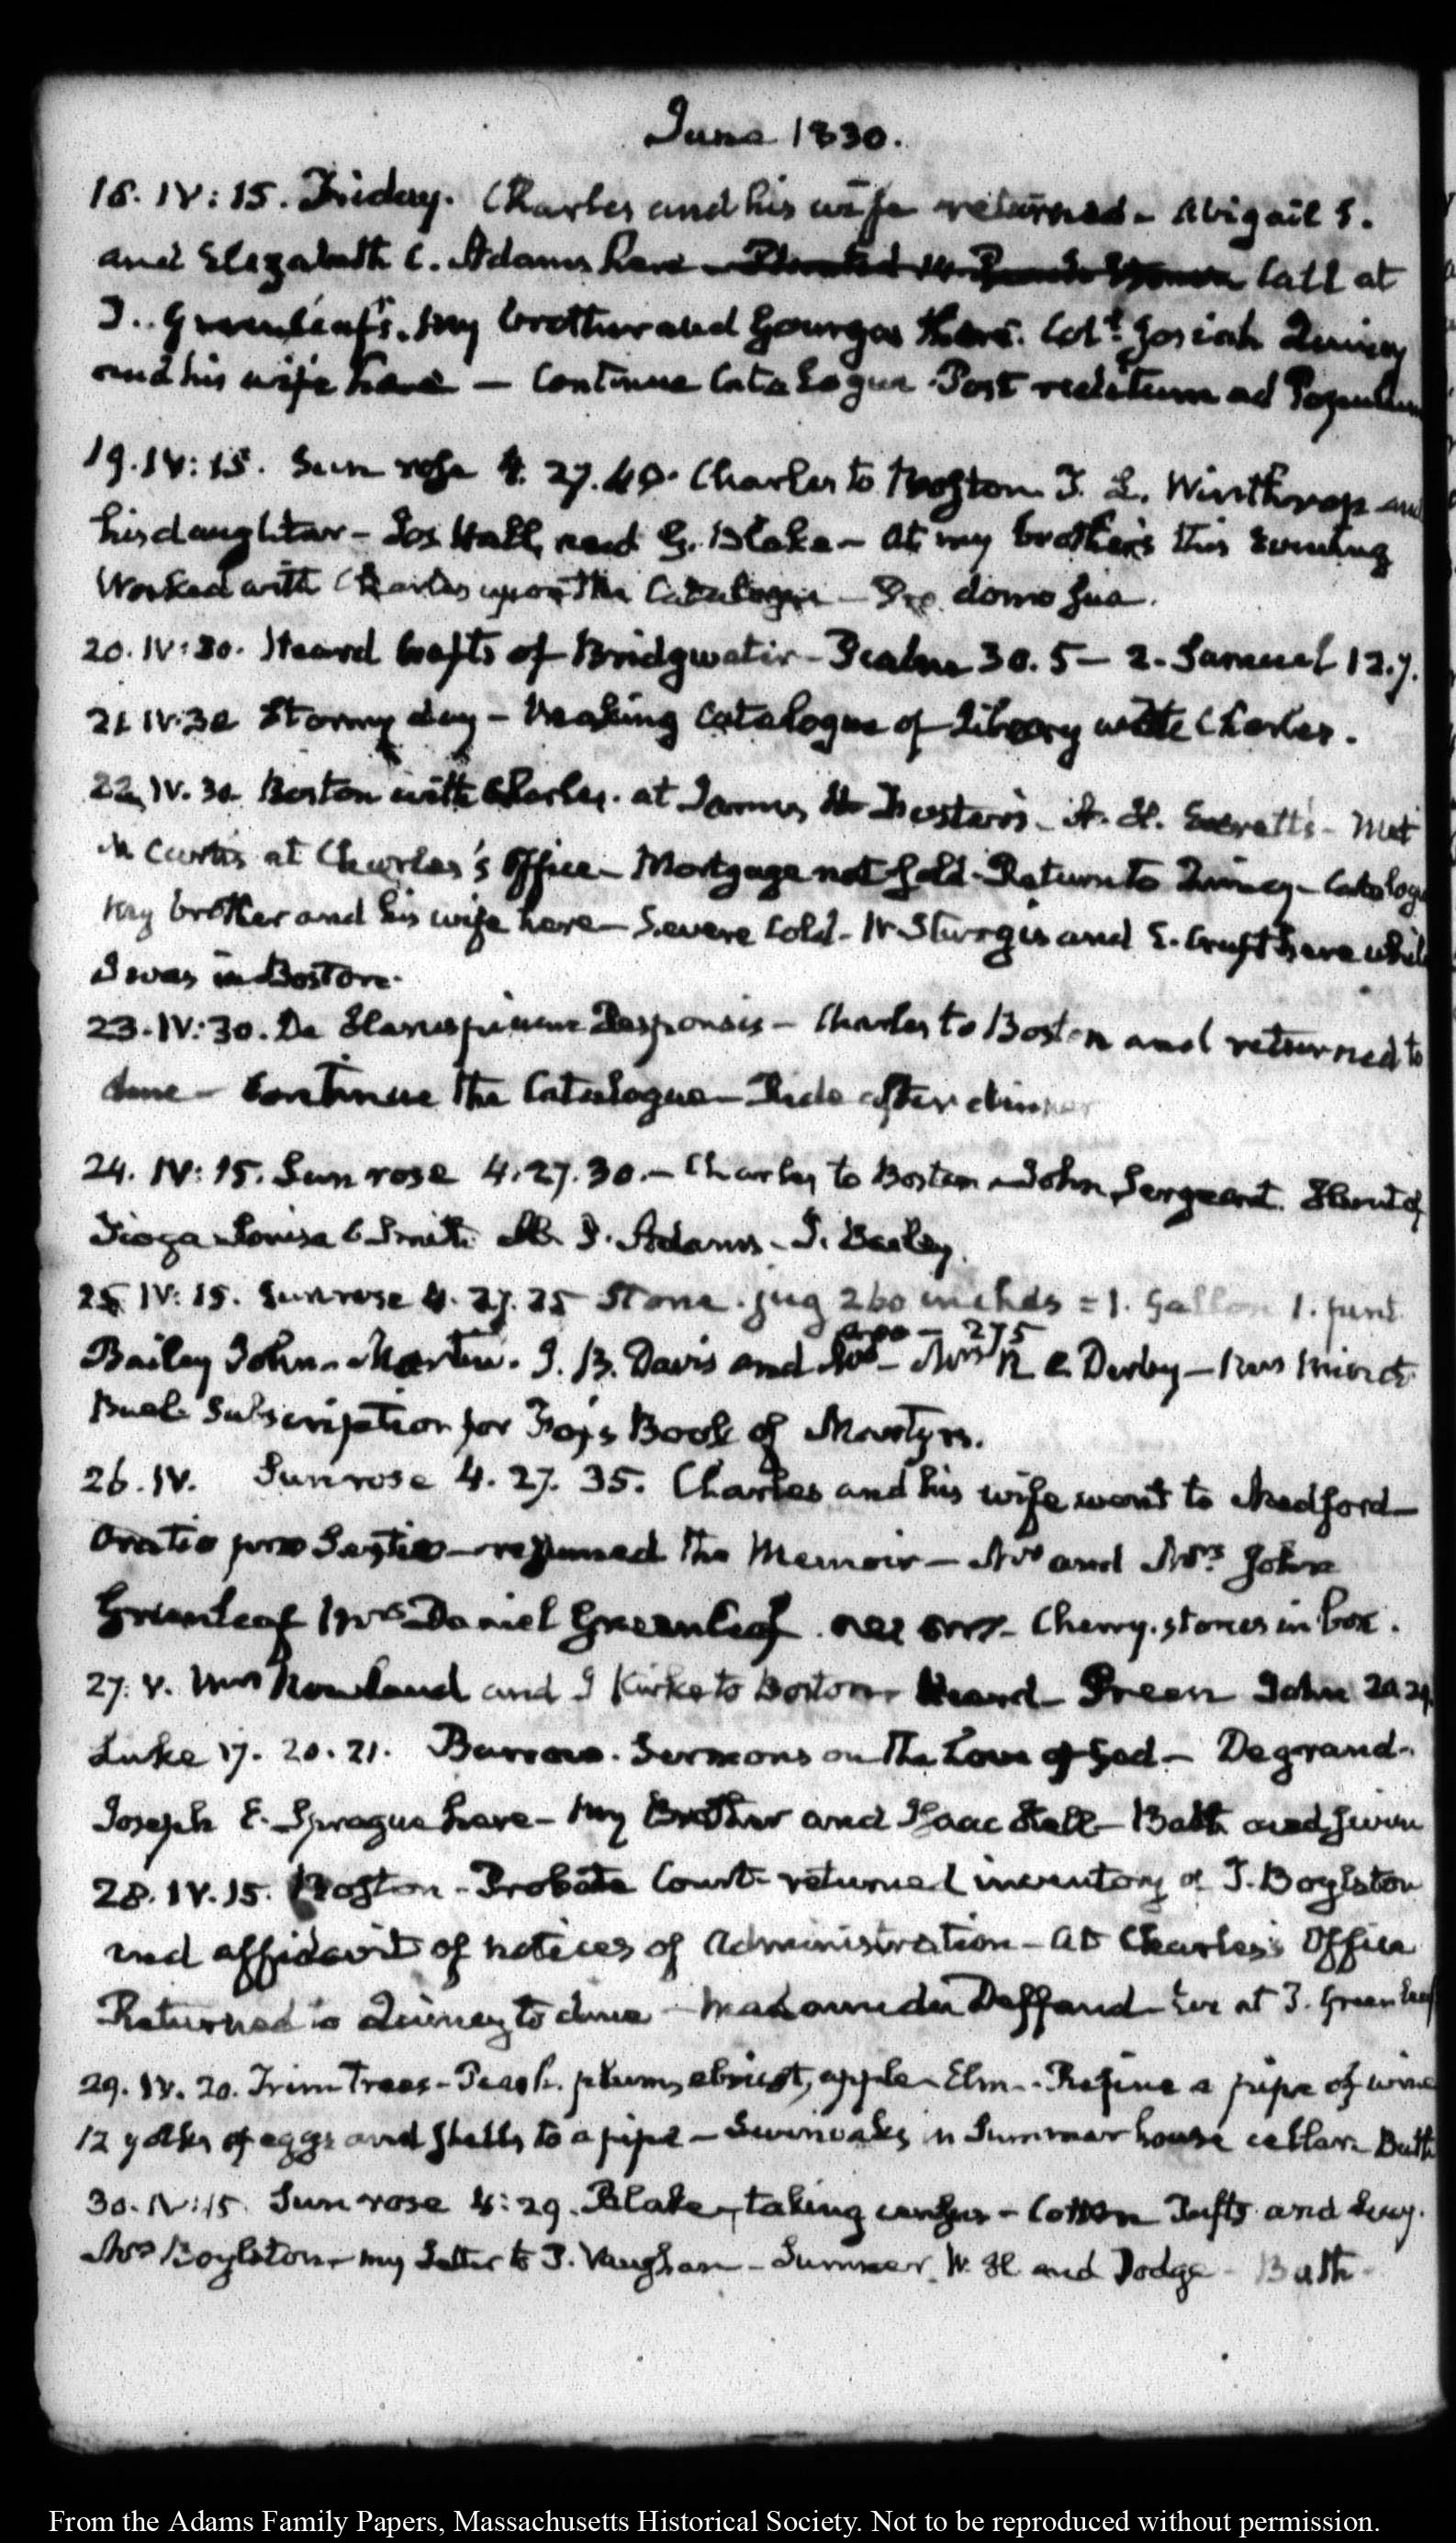 June 1830.
18. IV: 15. Friday. Charles and his wife returned - Abigail S.
and Elizabeth C. Adams here - Call at
T. Greenleaf's. My brother and Gourgas there. Colt. Josiah Quincy
and his wife here — Continue Catalogue Post reditum ad Populum
19. IV: 15. Sun rose 4. 27. 40. Charles to Boston T. L. Winthrop and
his daughter - Jos Hall, and G. Blake - at my brother's this evening
Worked with Charles upon the Catalogue - Pro domo sua.
20. IV: 30. Heard Crafts of Bridgwater - Psalm 30. 5 - 2. Samuel 12. 7.
21 IV. 30 Stormy day - Making Catalogue of Library with Charles.
22. IV. 30 Boston with Charles. at James H Foster's - A. H. Everett's - Met
N Curtis at Charles's Office - Mortgage not Sold - Return to Quincy - Catalogue
My brother and his wife here - Severe Cold - W Sturgis and E. Cruft here while
I was in Boston.
23. IV: 30. De Haruspicum Responsis - Charles to Boston and returned to
dine - Continue the Catalogue - Ride after dinner
24. IV: 15. Sun rose 4. 27. 30. - Charles to Boston - John Sergeant. of
Tioga Louisa C Smith T. Adams - J. Bailey.
25 IV: 15. Sun rose 4. 27. 25 Stone jug 260 inches = 1. Gallon 1. pint
275
Bailey John - Martin. J. B. Davis and Mrs R C Derby - Mrs Minot
Buck Subscription for Fox's Book of Martyrs.
26. IV. Sun rose 4. 27. 35. Charles and his wife went to Medford -
Oratio pro Sextio - resumed the Memoir - Mr and Mrs. John
Greenleaf Mrs Daniel Greenleaf. Cherry. stones in box.
27. V. Mrs Nowland and J Kirke to Boston - Heard - Green John 20. 29.
Luke 17. 20. 21. Barrow. Sermons on the Love of God - Degrand -
Joseph E. Sprague here - My Brother and Isaac Hull - Bath and swim
28. IV. 15. Boston - Probate Court - returned inventory of T. Boylston
and affidavit of notices of Administration - at Charles's Office
Returned to Quincy to dine - Madame du Deffand - Eve at T. Greenleaf
29. IV. 20. Trim Trees - Peach. plum, apricot, apple - Elm - Refine a pipe of wine
12 yolks of eggs and shells to a pipe - in Summer house cellar. Bath
30. IV: 15 Sun rose 4: 29. Blake, taking census - Cotton Tufts and Lucy.
Mrs Boylston - my Letter to J. Vaughan - Sumner. W. H. and Dodge - Bath.
From the Adams Family Papers, Massachusetts Historical Society. Not to be reproduced without permission.